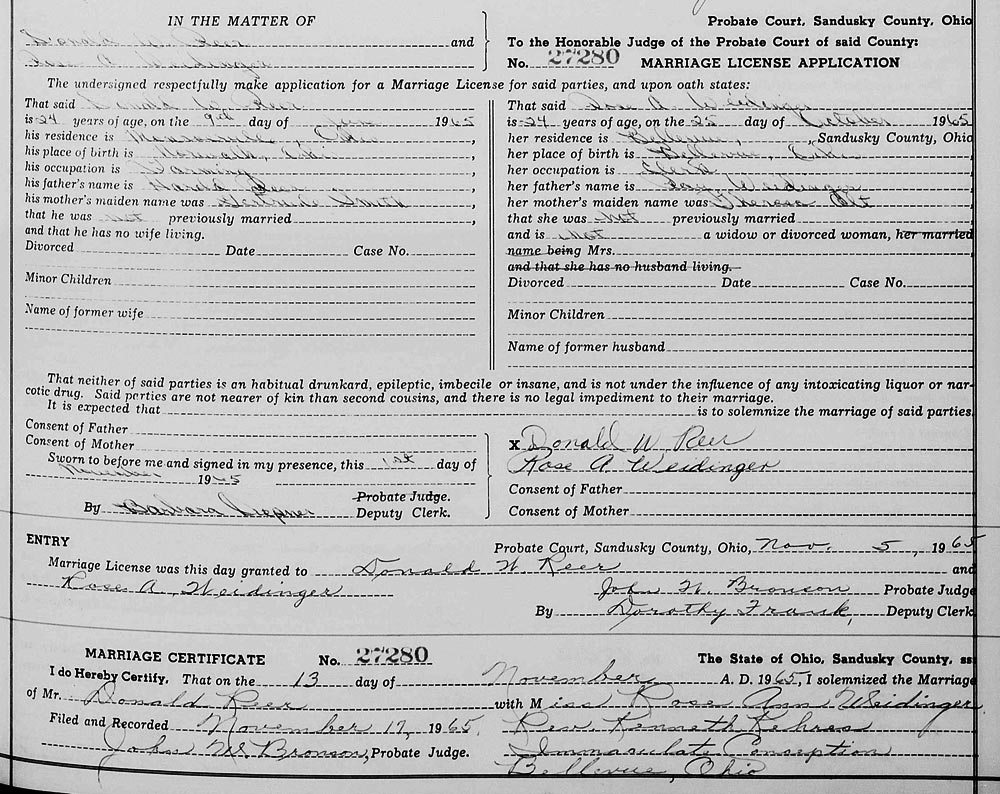 IN THE MATTER OF
Donald W. Reer and
Rose A. Weidinger
Probate Court, Sandusky County, Ohio
To the Honorable Judge of the Probate Court of said County:
No. 27280 MARRIAGE LICENSE APPLICATION
The undersigned respectfully make application for a Marriage License for said parties, and upon oath states:
That said Donald W. Reer
is 24 years of age, on the 9th day of 1965,
his residence is Monroeville, Ohio,
his place of birth is Norwalk, Ohio,
his occupation is Farming,
his father's name is Harold Reer,
his mother's maiden name was Gertrude Smith,
that he was not previously married,
and that he has no wife living.
Divorced Date Case No.
Minor Children
Name of former wife
That said Rose A. Weidinger
is 24 years of age, on the 25 day of October 1965,
her residence is Bellevue, Sandusky County, Ohio
her place of birth is Bellevue, Ohio,
her occupation is Clerk,
her father's name is Weidinger,
her mother's maiden name was Theresa Ott,
that she was not previously married
and is not a widow or divorced woman, her married
name being Mrs.
and that she has no husband living.
Divorced Date Case No.
Minor Children
Name of former husband
That neither of said parties is an habitual drunkard, epileptic, imbecile or insane, and is not under the influence of any intoxicating liquor or nar-
cotic drug. Said parties are not nearer of kin than second cousins, and there is no legal impediment to their marriage.
It is expected that is to solemnize the marriage of said parties.
Consent of Father
Consent of Mother
Sworn to before me and signed in my presence, this 1st day of
November 1965
Probate Judge.
By Barbara Deputy Clerk.
X Donald W Reer
Rose A. Weidinger
Consent of Father
Consent of Mother
ENTRY
Probate Court, Sandusky County, Ohio, Nov. 5, 1965
Marriage License was this day granted to Donald W Reer and
Rose A. Weidinger
John W. Bronson Probate Judge
By Dorothy Frank, Deputy Clerk
MARRIAGE CERTIFICATE No. 27280 The State of Ohio, Sandusky County, ss:
I do Hereby Certify, That on the 13 day of November A. D. 1965, I solemnized the Marriage
of Mr. Donald Reer with Miss Rose Ann Weidinger
Filed and Recorded November 17, 1965. Rev. Kenneth Kehres
John W. Bronson, Probate Judge. Immaculate Conception
Bellevue, Ohio